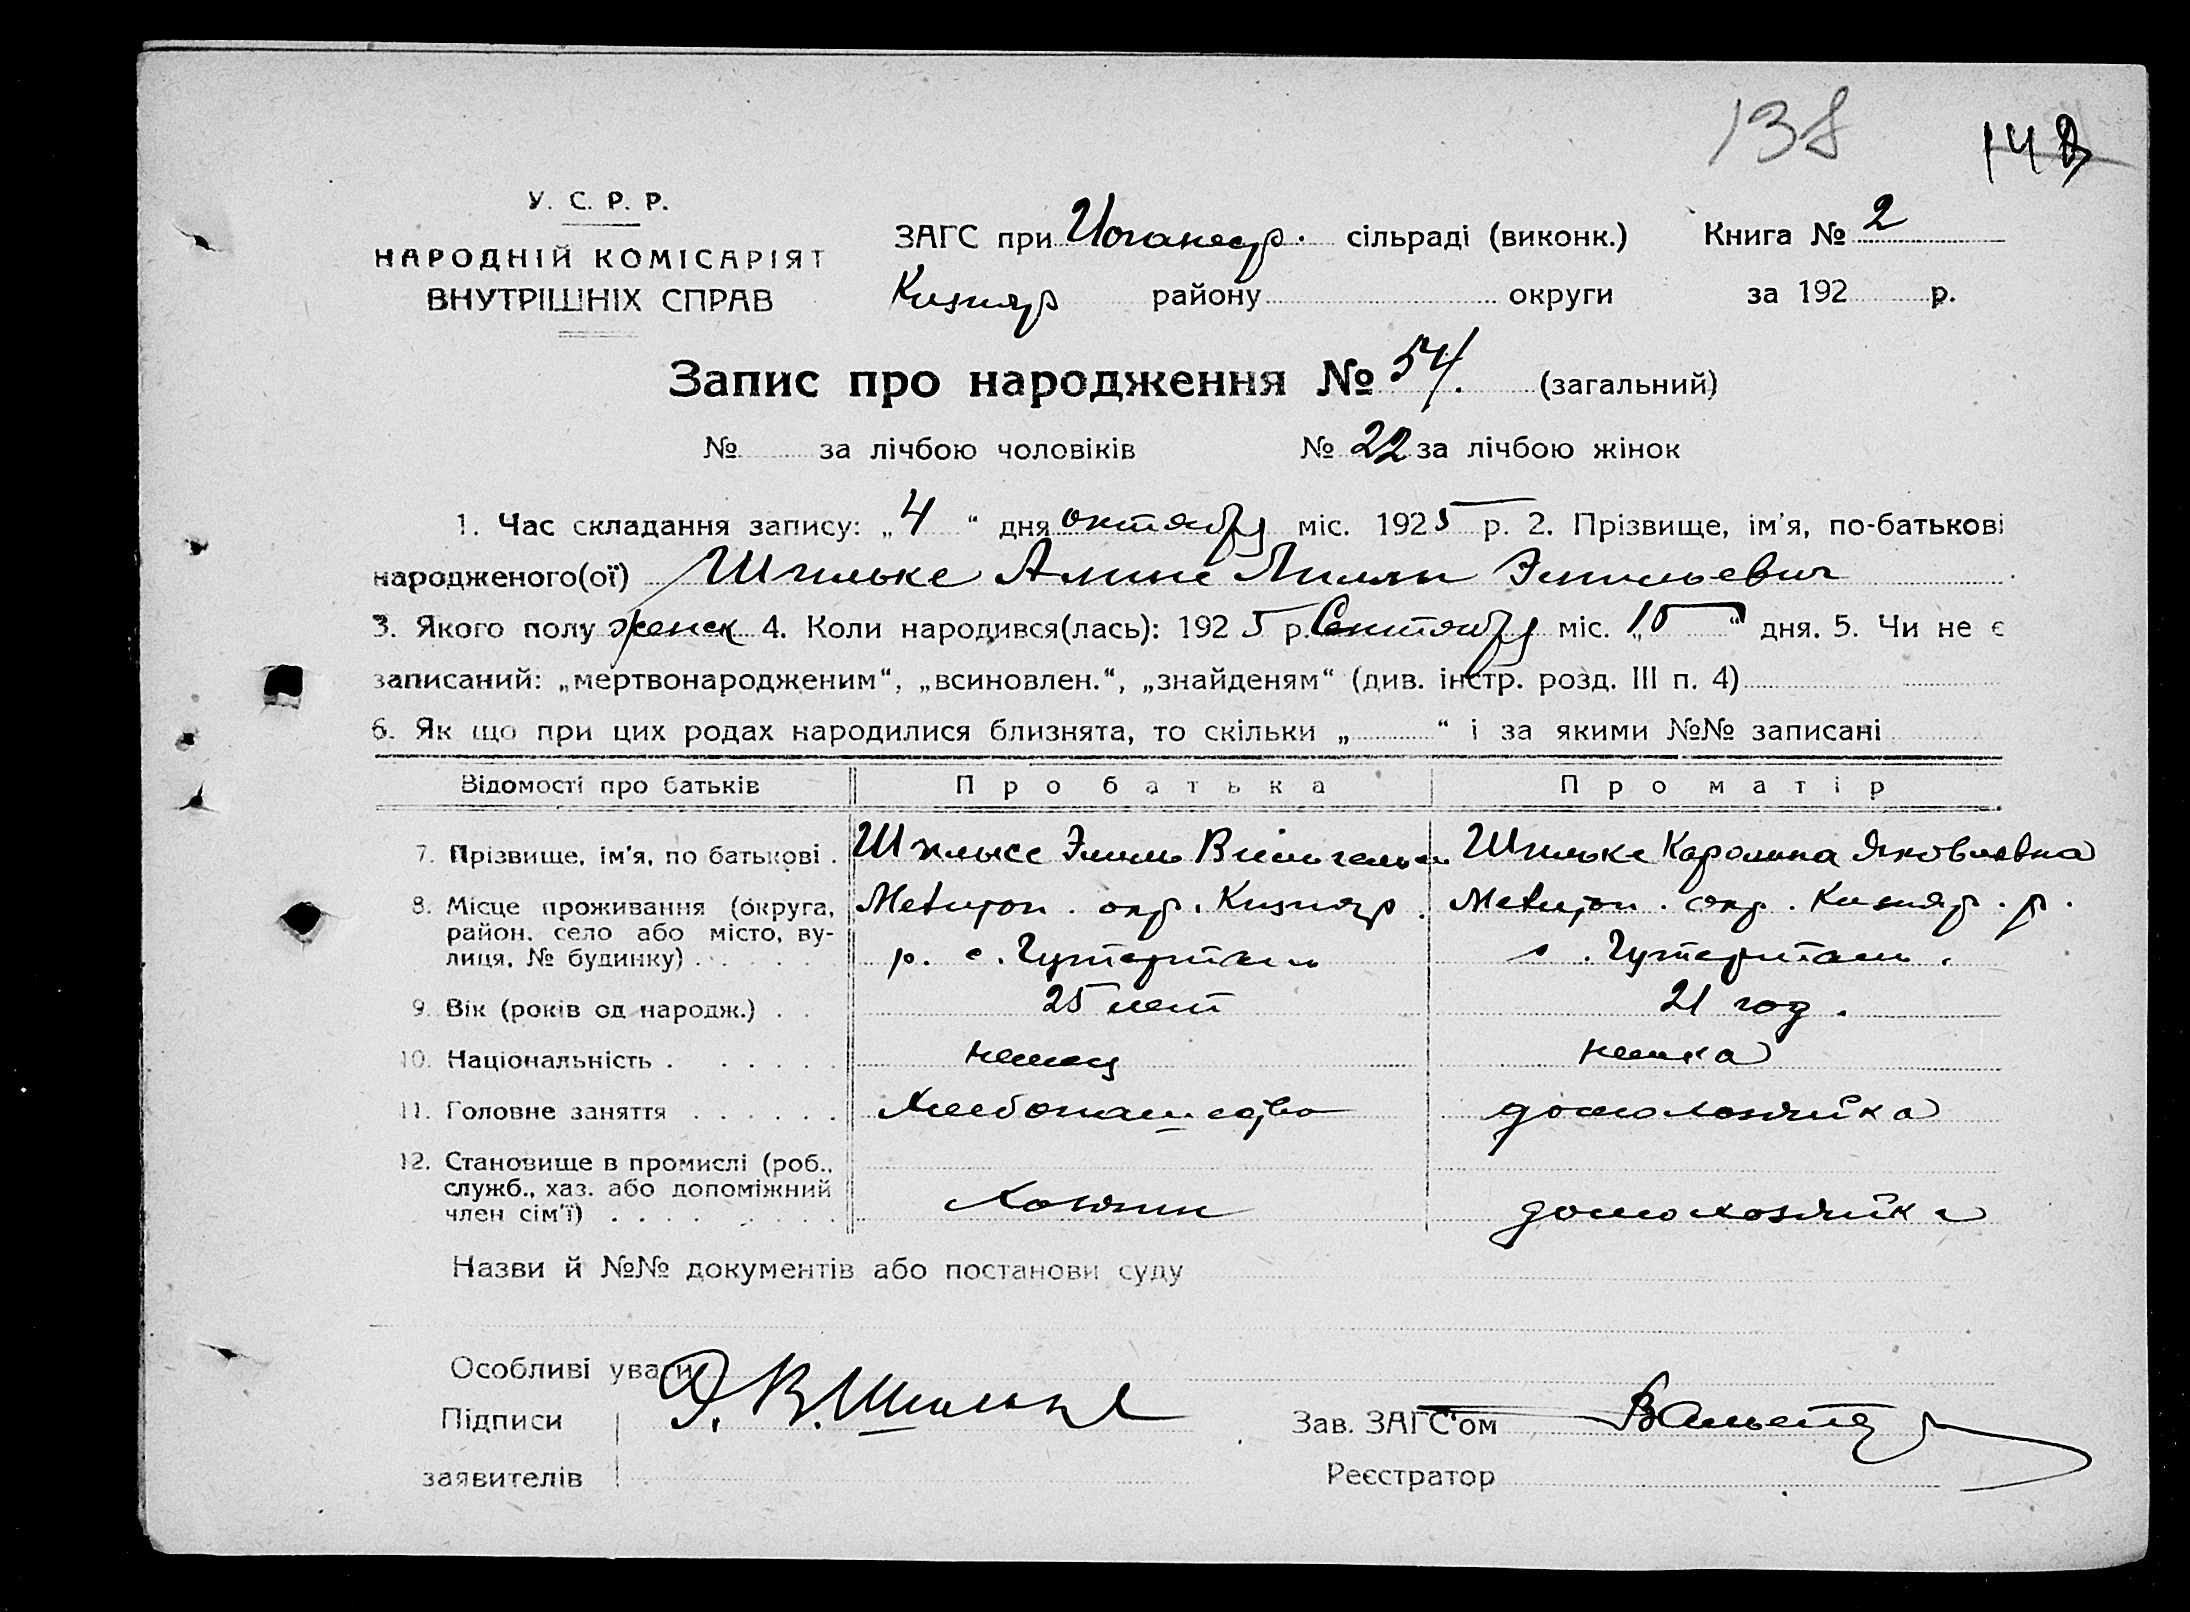 138 148
У. С. Р. Р.
НАРОДНІЙ КОМІСАРІЯТ
ВНУТРІШНІХ СПРАВ
ЗАГС при сільраді (виконк.) Книга № 2
району округи за 192 р.
Запис про народження № 54. (загальний)
№ за лічбою чоловіків № 22 за лічбою жінок
1. Час складання запису: „4“ дня октября міс. 1925 р. 2. Прізвище, ім'я, по-батькові
народженого(ої) Шильке Эмильевич
3. Якого полу женск 4. Коли народився(лась): 1925 р. Сентября міс. „15“ дня. 5. Чи не є
записаний: „мертвонародженим“, „всиновлен.“, „знайденям“ (див. інстр. розд. III п. 4)
6. Як що при цих родах народилися близнята, то скільки „ “ і за якими №№ записані
Відомості про батьків Про батька Про матір
7. Прізвище, ім'я, по батькові . Шильке Эмиль Шильке Каролина Яковлевна
8. Місце проживання (округа, Мелитоп. окр. . Мелитоп. окр. р.
район, село або місто, ву- р. с. Гутерталь с. Гутерталь.
лиця, № будинку) . . . . . .
9. Вік (років од народж.) . . 25 лет 21 год.
10. Національність . . . . . . немец немка
11. Головне заняття . . . . . . Хлебопашество домохозяйка
12. Становище в промислі (роб.,
служб., хаз. або допоміжний
член сім'ї) . . . . . . . . Хозяин домохозяйка
Назви й №№ документів або постанови суду
Особливі уваги
Підписи Э. В. Шильке Зав. ЗАГС'ом
заявителів Реєстратор